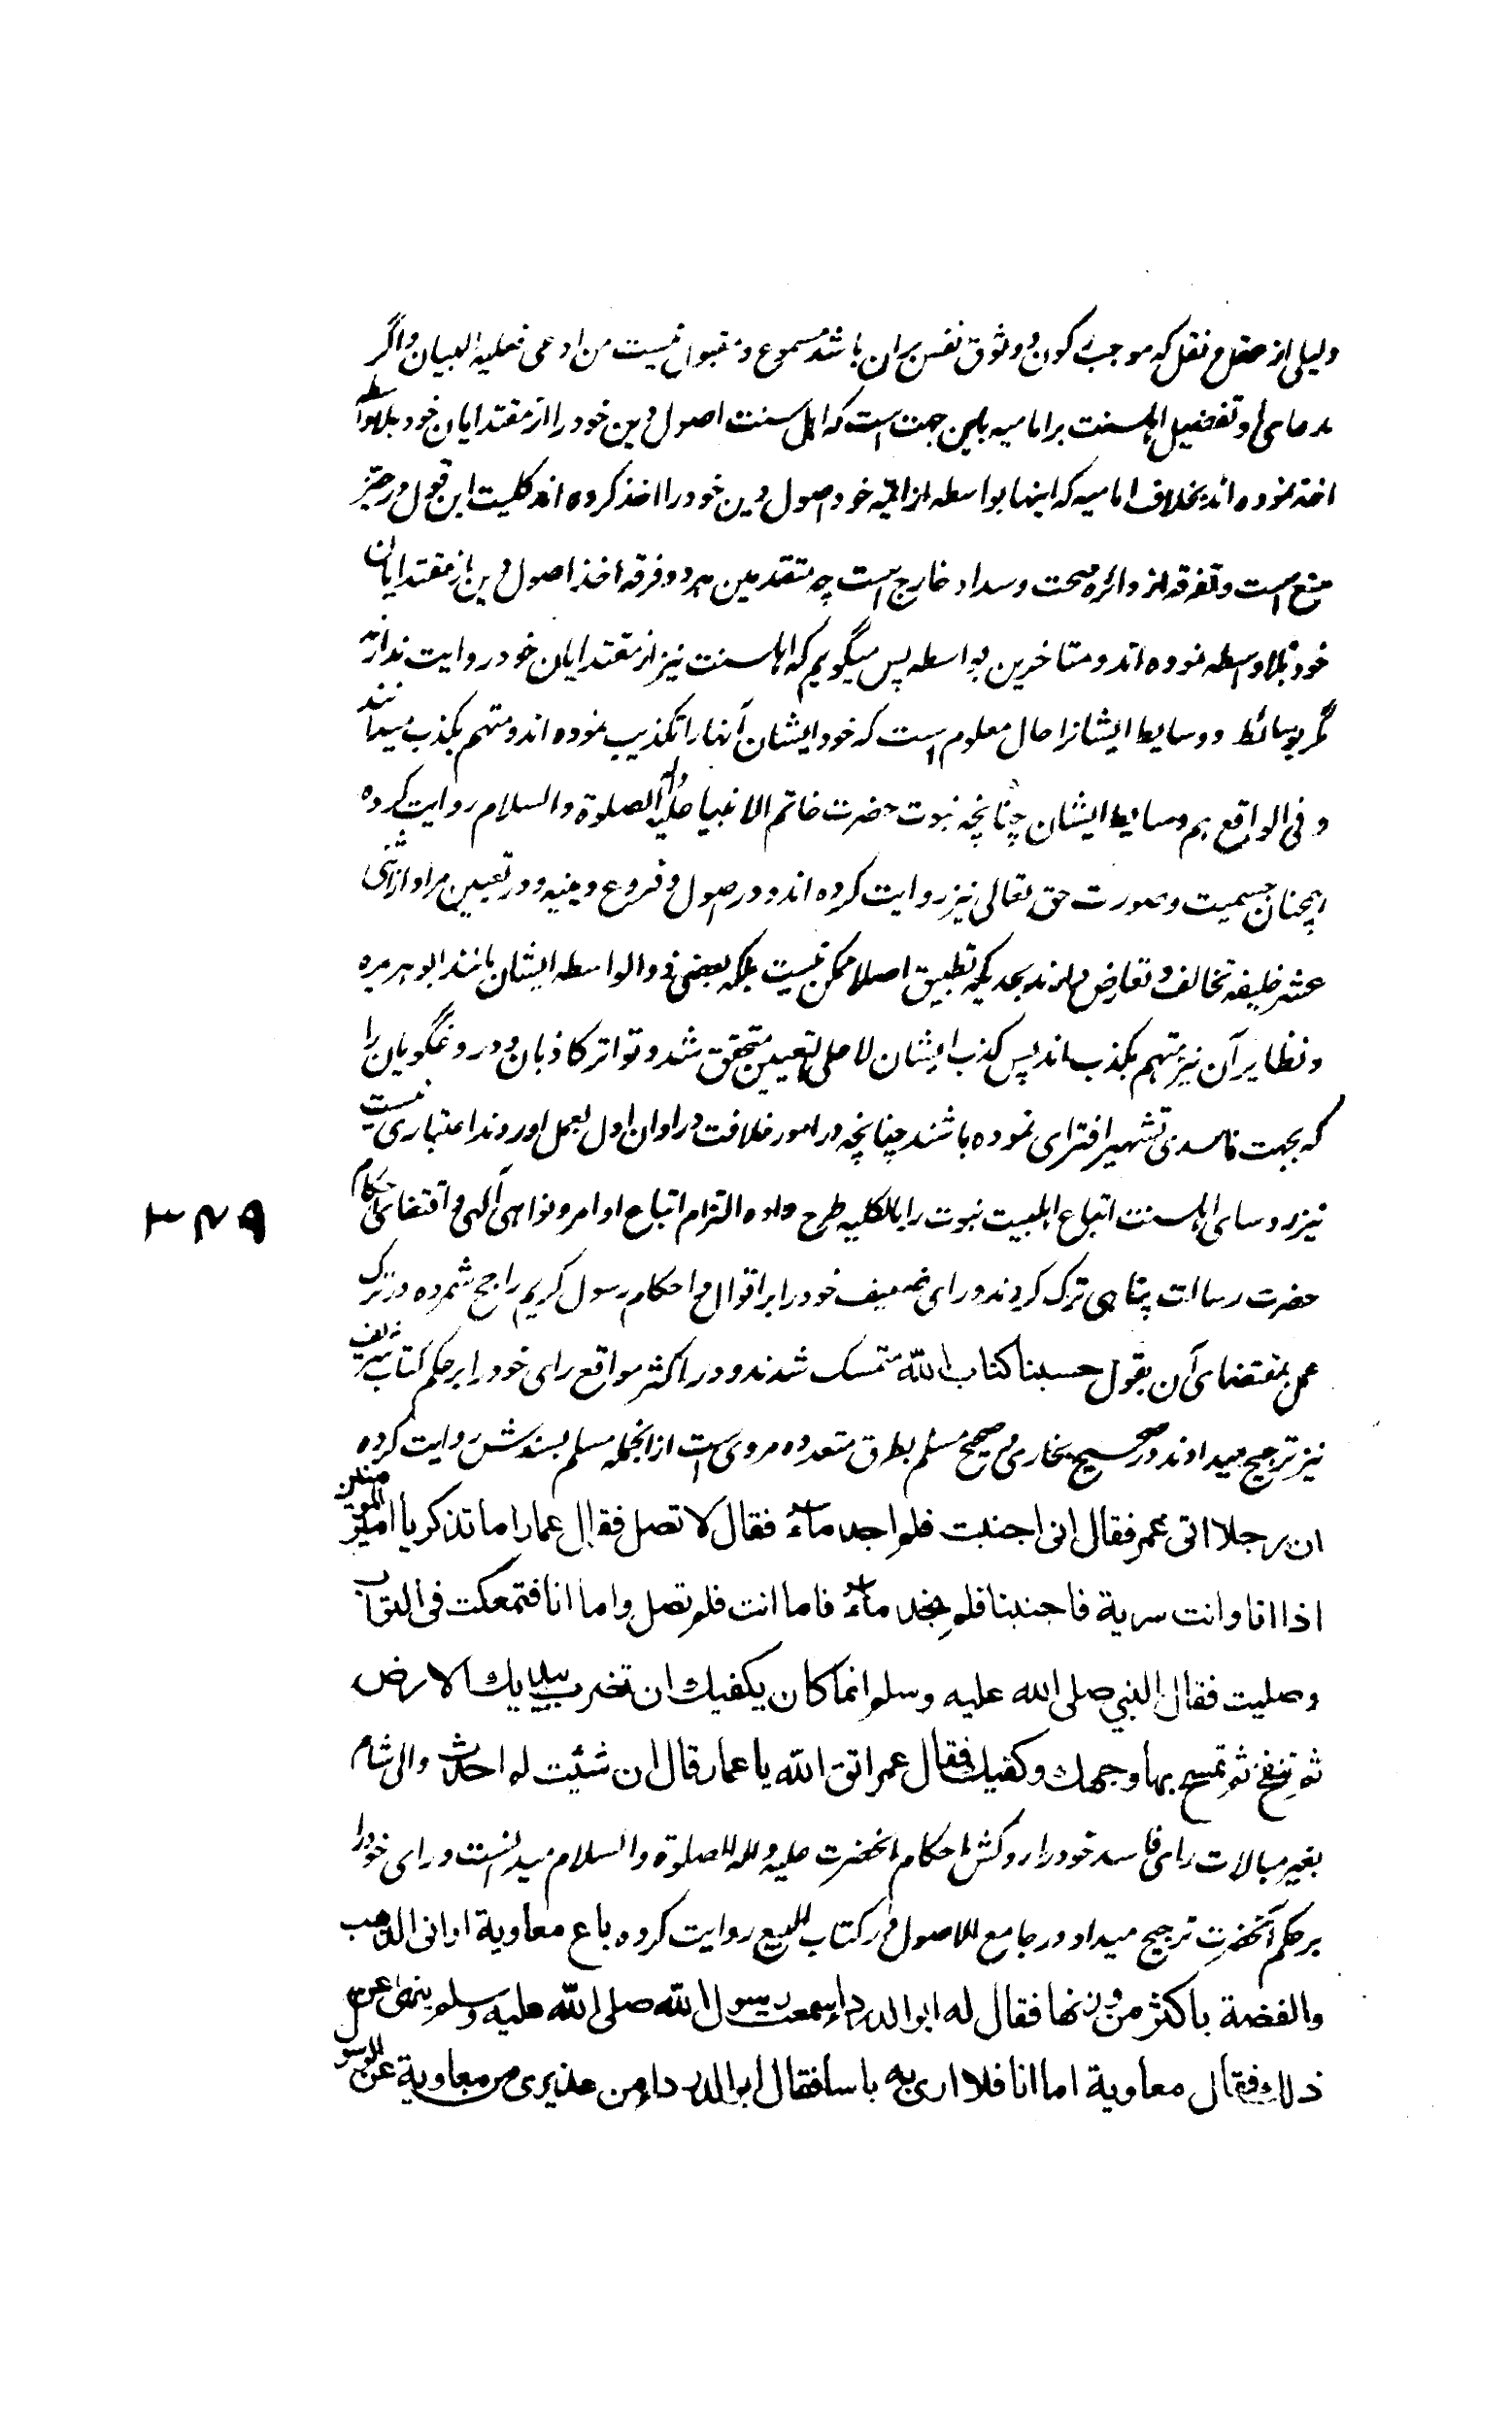 دلیلی از عقل و نقل که موجب رکون و وثوق نفس بران باشد مسموع و مقبول نیست من ادعی فعلیه البیان و اگر
مدعای او تفضیل اهلسنت بر امامیه باین جهت است که اهل سنت اصول دین خود را از مقتدایان خود بلاواسطه
اخذ نموده اند بخلاف امامیه که اینها بواسطه از ائمه خود اصول دین خود را اخذ کرده اند کلیت این قول در حیز
منع است و تفرقه از دائره صحت و سداد خارج است چه متقدمین هر دو فرقه اخذ اصول دین از مقتدایان
خود بلا واسطه نموده اند و متاخرین بواسطه پس میگویم که اهلسنت نیز از مقتدایان خود روایت ندارند
مگر بوسائط و وسایط ایشانرا حال معلوم است که خود ایشان آنها را تکذیب نموده اند و متهم بکذب میدانند
و فی الواقع هم وسایط ایشان چنانچه نبوت حضرت خاتم الانبیا علیه واله الصلوة والسلام روایت کرده
همچنان جسمیت و صورت حق تعالی نیز روایت کرده اند و در اصول و فروع دینیه و در تعیین مراد از اثنی
عشر خلیفه تخالف و تعارض دارند بحدیکه تطبیق اصلا ممکن نیست بلکه بعضی ذو الواسطه ایشان مانند ابو هریره
و نظایر آن نیز متهم بکذب اند پس کذب ایشان لا علی التعیین متحقق شد و تواتر کاذبان و دروغگویان را
که بجهت فاسدی تشهیر افترای نموده باشند چنانچه در امور خلافت در اوان اول بعمل اوردند اعتباری نیست
نیز روسای اهلسنت اتباع اهلبیت نبوت را بالکلیه طرح داده التزام اتباع اوامر و نواهی آلهی و اقتضای احکام
حضرت رسالت پناهی ترک کردند و رای ضعیف خود را بر اقوال و احکام رسول کریم راجح شمرده در ترک
عمل بمقتضای آن بقول حسبنا کتاب الله متمسک شدند و در اکثر مواقع رای خود را بر حکم کتاب شریف
نیز ترجیح میدادند در صحیح بخاری و صحیح مسلم بطرق متعدده مروی است از انجمله مسلم بسندش روایت کرده
ان رجلا اتی عمر فقال انی اجنبت فلم اجد ماء فقال لا تصل فقال عمار اما تذکر یا امیر المومنین
اذا انا وانت سریة فاجنبنا فلم نجد ماء فاما انت فلم تصل واما انا فتمعکت فی التراب
وصلیت فقال النبی صلی الله علیه وسلم انما کان یکفیك ان تضرب بیدیك الارض
ثم تنفخ ثم تمسح بهما وجهك وکفیك فقال عمر اتق الله یا عمار قال ان شئت لم احدث والی شام
بغیر مبالات رای فاسد خود را روکش احکام انحضرت علیه واله الصلوة والسلام میدانست و رای خود را
بر حکم آنحضرت ترجیح میداد در جامع الاصول در کتاب البیع روایت کرده باع معاویة اوانی الذهب
والفضة باکثر من وزنها فقال له ابو الدرداء سمعت رسول الله صلی الله علیه وسلم ینهی عن مثل
ذلك فقال معاویة اما انا فلا اری به باسا فقال ابو الدرداء من عذیری من معاویة عن الرسو
۳۴۹